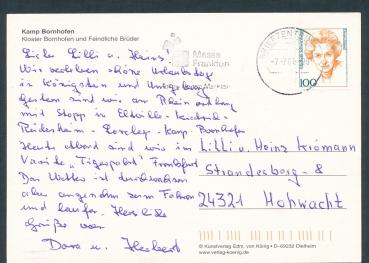 Kamp Bornhofen
Kloster Bornhofen und Feindliche Brüder
Liebe Lilli u. Heinz!
Wir verleben schöne Urlaubstage
in Königstein und Umgebung
Gestern sind wir am Rhein entlang
mit Stopp in Eltville -
Rüdesheim - Loreley - Kamp-Bornhofen
Heute Abend sind wir im
Varieté „Tigerpalast" Frankfurt
Das Wetter ist durchwachsen
aber angenehm zum Fahren
und laufen. Herzliche
Grüße von
Dora u. Herbert
Messe
Frankfurt
BRIEFZENTRUM
100
Lilli u. Heinz
Strandesberg - 8
24321 Hohwacht
© Kunstverlag Edm. von König · D-69232 Dielheim
www.verlag-koenig.de